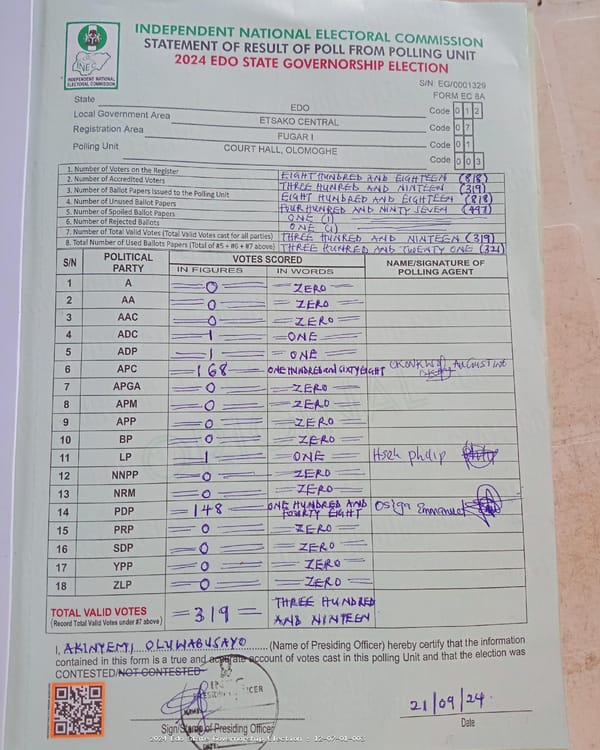 INEC
INDEPENDENT NATIONAL
ELECTORAL COMMISSION
INDEPENDENT NATIONAL ELECTORAL COMMISSION
STATEMENT OF RESULT OF POLL FROM POLLING UNIT
2024 EDO STATE GOVERNORSHIP ELECTION
S/N: EG/0001329
FORM EC 8A
State EDO Code 0 1 2
Local Government Area ETSAKO CENTRAL Code 0 7
Registration Area FUGAR I Code 0 1
Polling Unit COURT HALL, OLOMOGHE Code 0 0 3
1. Number of Voters on the Register EIGHT HUNDRED AND EIGHTEEN (818)
2. Number of Accredited Voters THREE HUNDRED AND NINTEEN (319)
3. Number of Ballot Papers Issued to the Polling Unit EIGHT HUNDRED AND EIGHTEEN (818)
4. Number of Unused Ballot Papers FOUR HUNDRED AND NINTY SEVEN (497)
5. Number of Spoiled Ballot Papers ONE (1)
6. Number of Rejected Ballots ONE (1)
7. Number of Total Valid Votes (Total Valid Votes cast for all parties) THREE HUNRED AND NINTEEN (319)
8. Total Number of Used Ballots Papers (Total of #5 + #6 + #7 above) THREE HUNDRED AND TWENTY ONE (321)
S/N POLITICAL PARTY VOTES SCORED NAME/SIGNATURE OF POLLING AGENT
IN FIGURES IN WORDS
1 A 0 ZERO
2 AA 0 ZERO
3 AAC 0 ZERO
4 ADC 1 ONE
5 ADP 1 ONE
6 APC 168 ONE HUNDRED and SIXTY EIGHT
7 APGA 0 ZERO
8 APM 0 ZERO
9 APP 0 ZERO
10 BP 0 ZERO
11 LP 1 ONE
12 NNPP 0 ZERO
13 NRM 0 ZERO
14 PDP 148 ONE HUNDRED AND FOURTY EIGHT Emmanuel
15 PRP 0 ZERO
16 SDP 0 ZERO
17 YPP 0 ZERO
18 ZLP 0 ZERO
TOTAL VALID VOTES =319= THREE HUNDRED
(Record Total Valid Votes under #7 above) AND NINTEEN
I, AKINYEMI OLUWABUSAYO (Name of Presiding Officer) hereby certify that the information
contained in this form is a true and accurate account of votes cast in this polling Unit and that the election was
CONTESTED/NOT CONTESTED
21/09/24
Sign/Stamp of Presiding Officer Date
2024 Edo State Governorship Election - 12-07-01-003